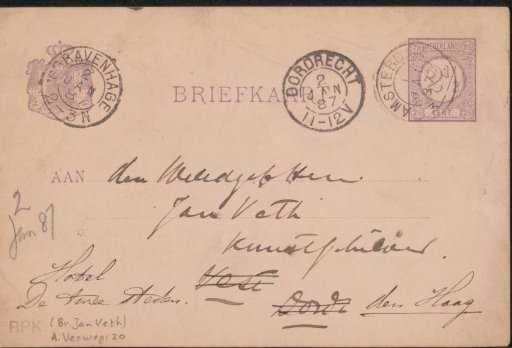 'S GRAVENHAGE
2
JAN
DORDRECHT
2
JAN
87
11-12V
AMSTERD
NEDERLAND
CENT.
BRIEFKAART
AAN den Weledgeb Heer
Jan Veth
Kunstschilder.
Vest
Dordt den Haag
Hotel
De Twee Steden.
2
Jan 87
RPK
(Br. Jan Veth)
A. Verwey: 20